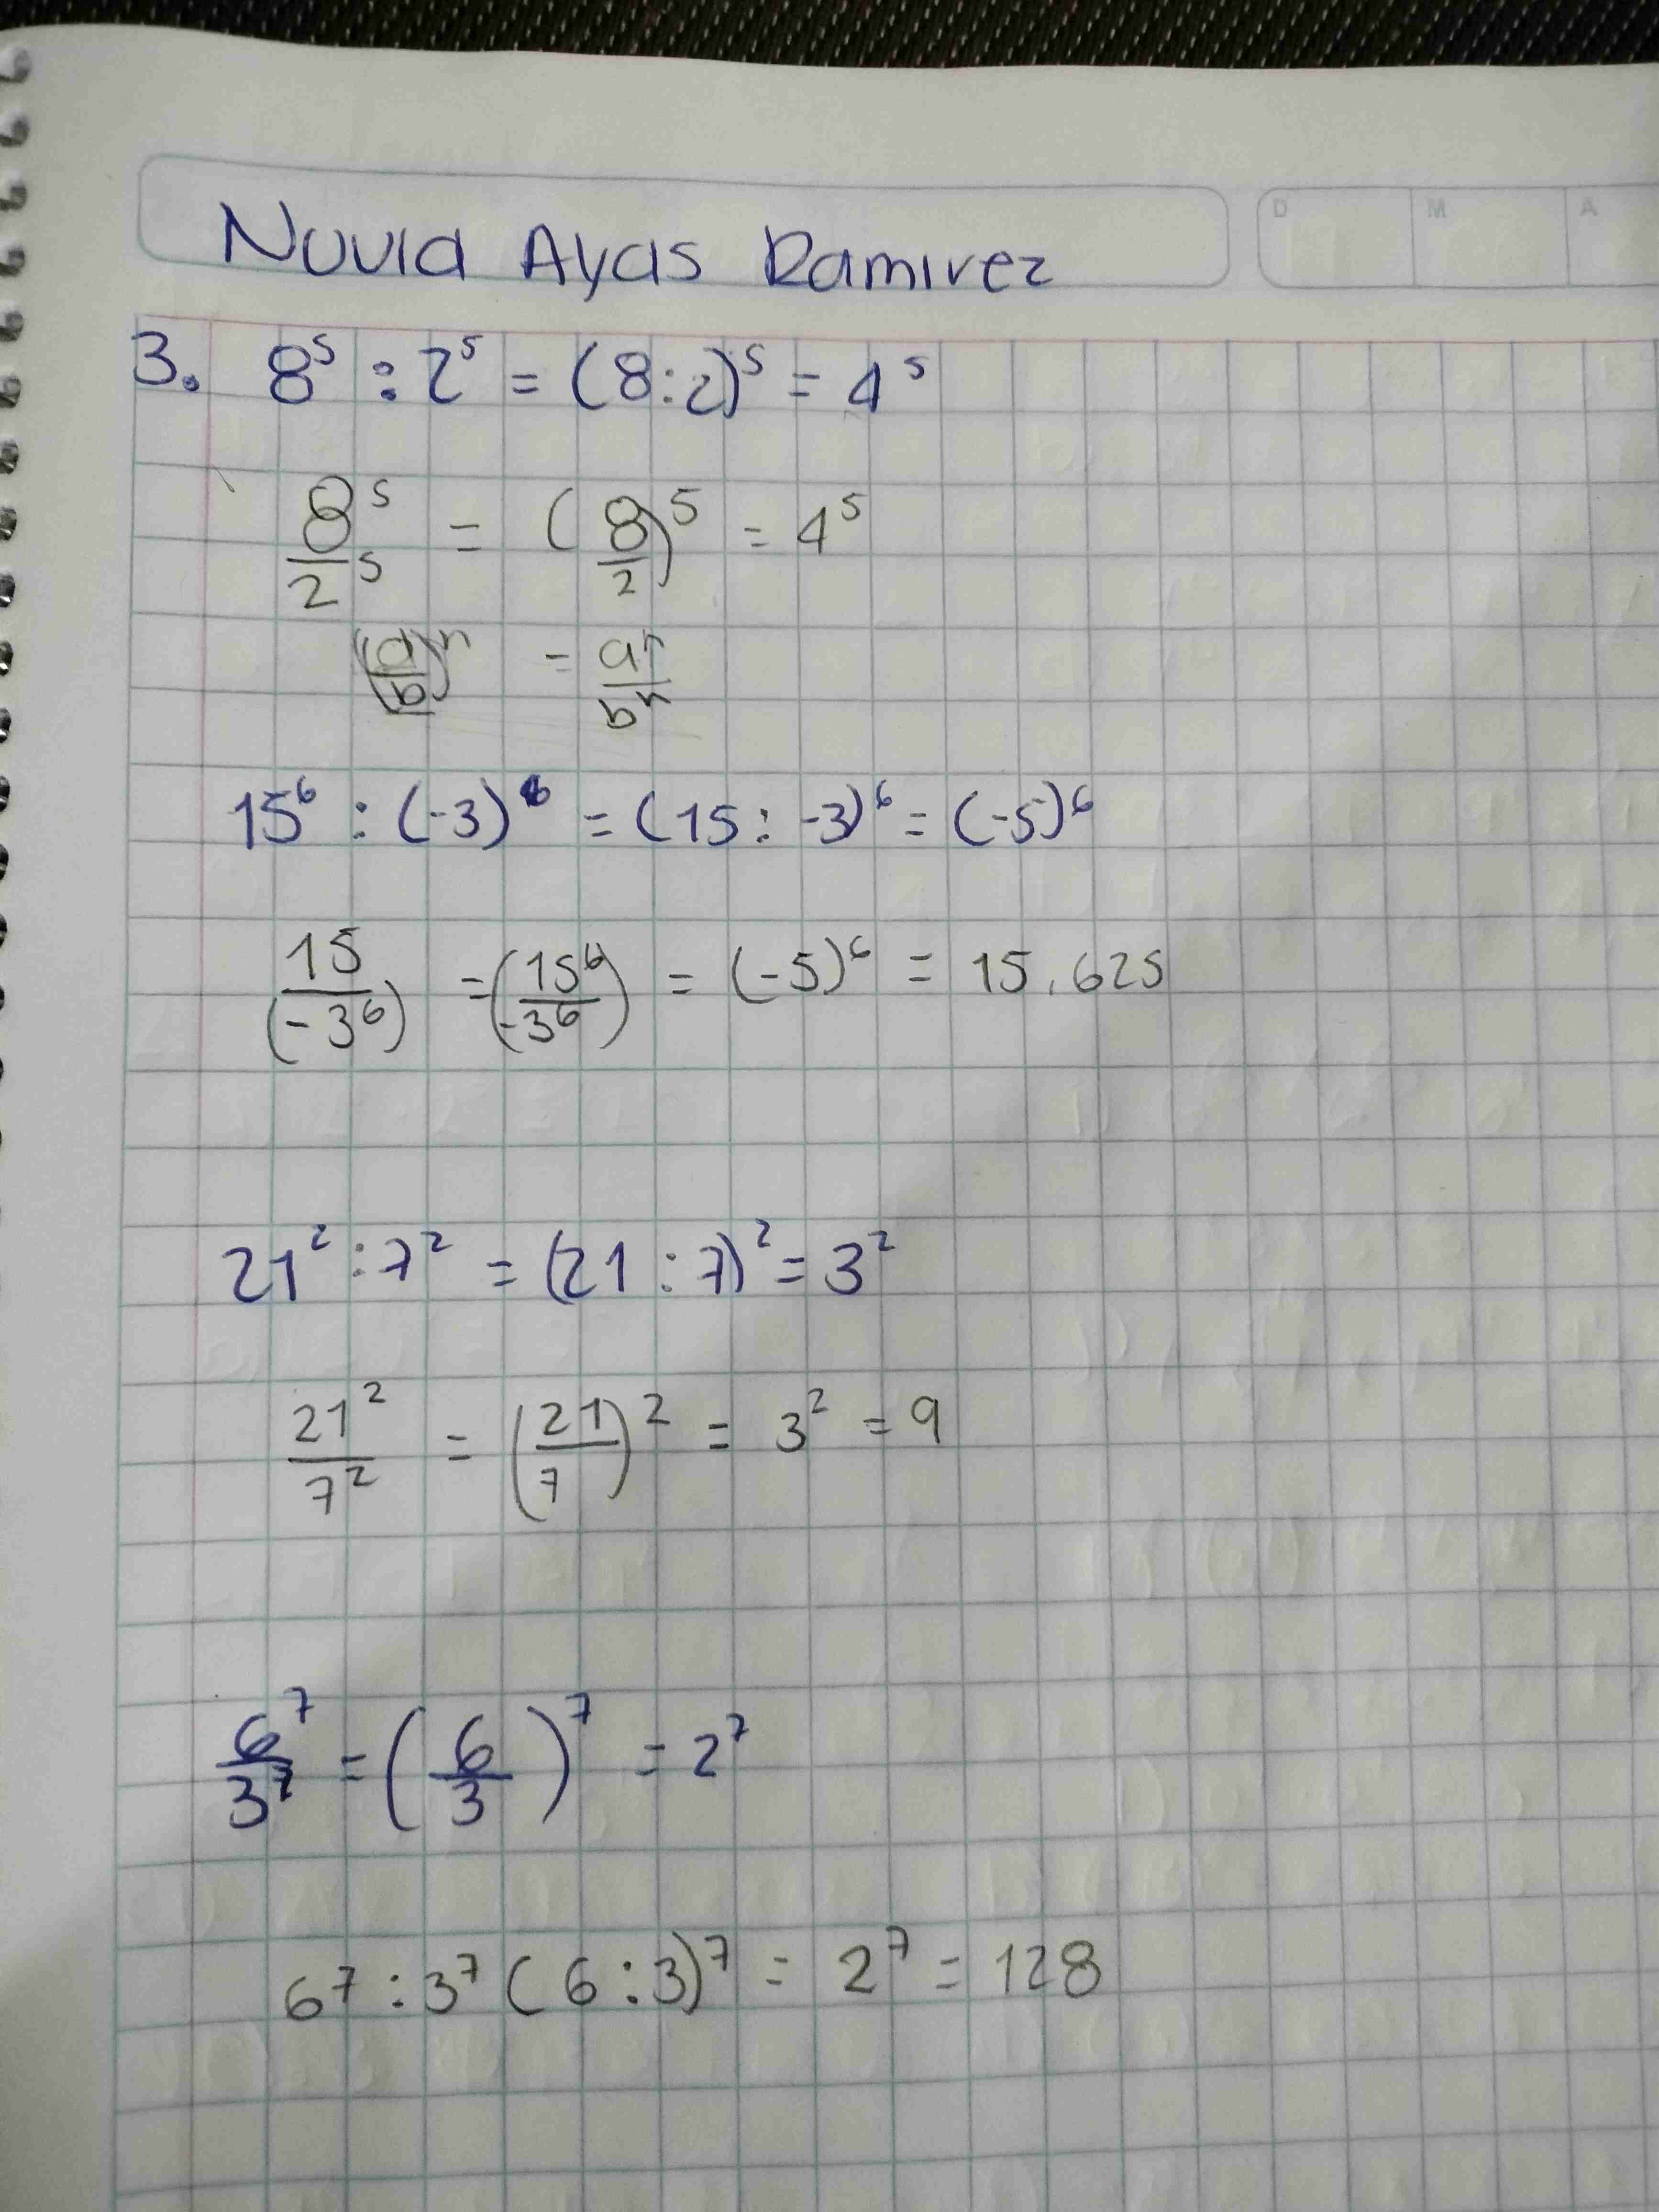 Nuvia Ayas Ramirez
D M A
3. 8⁵ : 2⁵ = (8:2)⁵ = 4⁵
8⁵/2⁵ = (8/2)⁵ = 4⁵
(a/b)ⁿ = aⁿ/bⁿ
15⁶ : (-3)⁶ = (15 : -3)⁶ = (-5)⁶
15/(-3⁶) = (15⁶/-3⁶) = (-5)⁶ = 15.625
21² : 7² = (21 : 7)² = 3²
21²/7² = (21/7)² = 3² = 9
6⁷/3⁷ = (6/3)⁷ = 2⁷
6⁷ : 3⁷ (6 : 3)⁷ = 2⁷ = 128